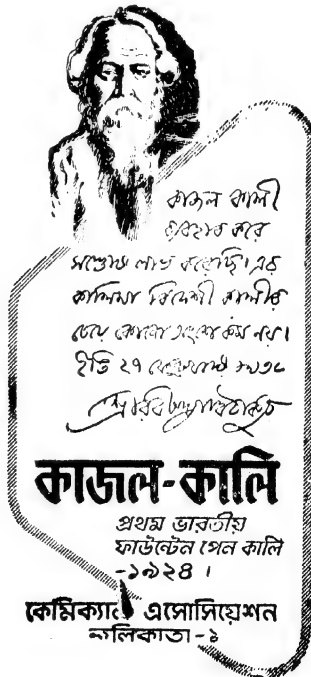 কাজল কালী
ব্যবহার করে
সন্তোষ লাভ করেছি। এর
কালিমা বিদেশী কালীর
চেয়ে কোনো অংশে কম নয়।
ইতি
শ্রীরবীন্দ্রনাথ ঠাকুর
কাজল-কালি
প্রথম ভারতীয়
ফাউন্টেন পেন কালি
-১৯২৪ ।
কেমিক্যাল এসোসিয়েশন
কলিকাতা-১